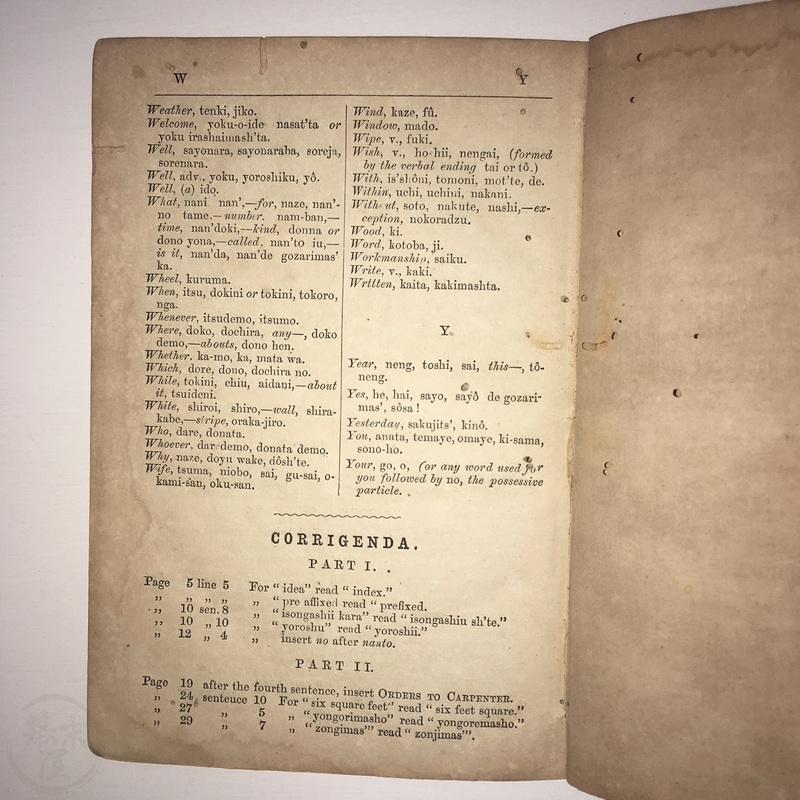 W
Y
Weather, tenki, jiko.
Welcome, yoku-o-ide nasat'ta or
yoku irashaimash'ta.
Well, sayonara, sayonaraba, soreja,
sorenara.
Well, adv., yoku, yoroshiku, yô.
Well, (a) ido.
What, nani nan',—for, naze, nan'-
no tame,—number. nam-ban,—
time, nan'doki,—kind, donna or
dono yona,—called, nan'to iu,—
is it, nan'da, nan'de gozarimas'
ka.
Wheel, kuruma.
When, itsu, dokini or tokini, tokoro,
nga.
Whenever, itsudemo, itsumo.
Where, doko, dochira, any—, doko
demo,—abouts, dono hen.
Whether. ka-mo, ka, mata wa.
Which, dore, dono, dochira no.
While, tokini, chiu, aidani,—about
it, tsuideni.
White, shiroi, shiro,—wall, shira-
kabe,—stripe, oraka-jiro.
Who, dare, donata.
Whoever, dare demo, donata demo.
Why, naze, doyu wake, dôsh'te.
Wife, tsuma, niobo, sai, gu-sai, o-
kami-san, oku-san.
Wind, kaze, fû.
Window, mado.
Wipe, v., fuki.
Wish, v., hoshii, nengai, (formed
by the verbal ending tai or tô.)
With, is'shôni, tomoni, mot'te, de.
Within, uchi, uchini, nakani.
Without, soto, nakute, nashi,—ex-
ception, nokoradzu.
Wood, ki.
Word, kotoba, ji.
Workmanship, saiku.
Write, v., kaki.
Wrttten, kaita, kakimashta.
Y.
Year, neng, toshi, sai, this—, tô-
neng.
Yes, he, hai, sayo, sayô de gozari-
mas', sôsa!
Yesterday, sakujits', kinô.
You, anata, temaye, omaye, ki-sama,
sono-ho.
Your, go, o, (or any word used for
you followed by no, the possessive
particle.
CORRIGENDA.
PART I.
Page 5 line 5 For "idea" read "index."
„ „ „ „ „ "pre affixed read "prefixed.
„ 10 sen. 8 „ "isongashii kara" read "isongashiu sh'te."
„ 10 „ 10 „ "yoroshu" read "yoroshii."
„ 12 „ 4 „ insert no after nanto.
PART II.
Page 19 after the fourth sentence, insert ORDERS TO CARPENTER.
„ 24 sentence 10 For "six square feet" read "six feet square."
„ 27 „ 5 „ "yongorimasho" read "yongoremasho."
„ 29 „ 7 „ "zongimas'" read "zonjimas'".